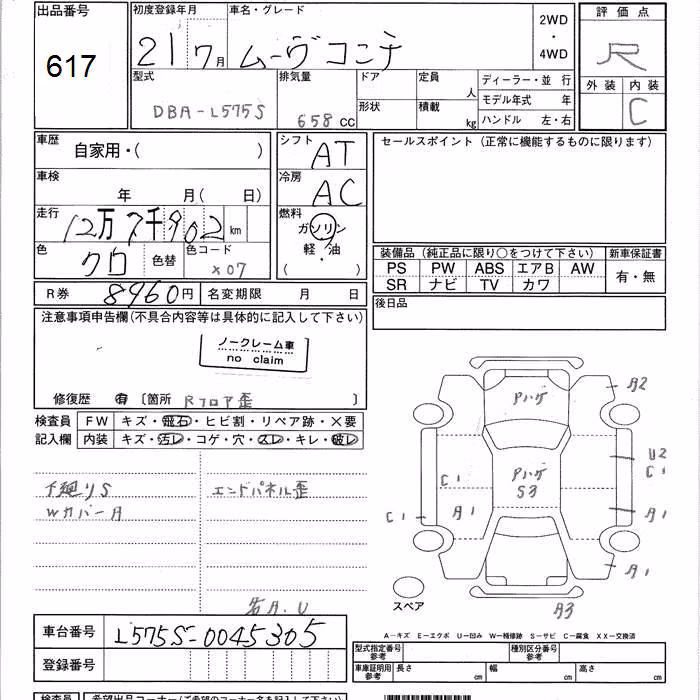 出品番号 初度登録年月 車名・グレード 2WD・4WD 評価点
617 21 7月 ムーヴコンテ R
型式 排気量 ドア 定員 人 ディーラー・並 行 外装 内装
DBA-L575S 658 CC 形状 積載 kg モデル年式 年 C
ハンドル 左・右
車歴 自家用・( ) シフト AT セールスポイント (正常に機能するものに限ります)
車検 年 月( 日) 冷房 AC
走行 12万7千902 km 燃料 ガソリン
色 クロ 色替 色コード X07 軽・油
( )
装備品 (純正品に限り○をつけて下さい) 新車保証書
PS PW ABS エアB AW 有・無
SR ナビ TV カワ
R券 8960円 名変期限 月 日 後日品
注意事項申告欄(不具合内容等は具体的に記入して下さい)
ノークレーム車
no claim
修復歴 有 〔箇所 Rフロア歪 〕
検査員 FW キズ・飛石・ヒビ割・リペア跡・×要
記入欄 内装 キズ・汚レ・コゲ・穴・スレ・キレ・破レ
下廻りS エンドパネル歪
WカバーA
各A.U
Pハゲ A2
C1 Pハゲ S3 U2 C1
C1 A1 A1
A1
スペア A3
A-キズ E-エクボ U-凹み W-補修跡 S-サビ C-腐食 XX-交換済
車台番号 L575S-0045305
型式指定番号 参考 種別区分番号 参考
登録番号 車庫証明用 参考 長さ cm 幅 cm 高さ cm
検査員 希望出品コーナー(ご希望のコーナー名を記入して下さい)